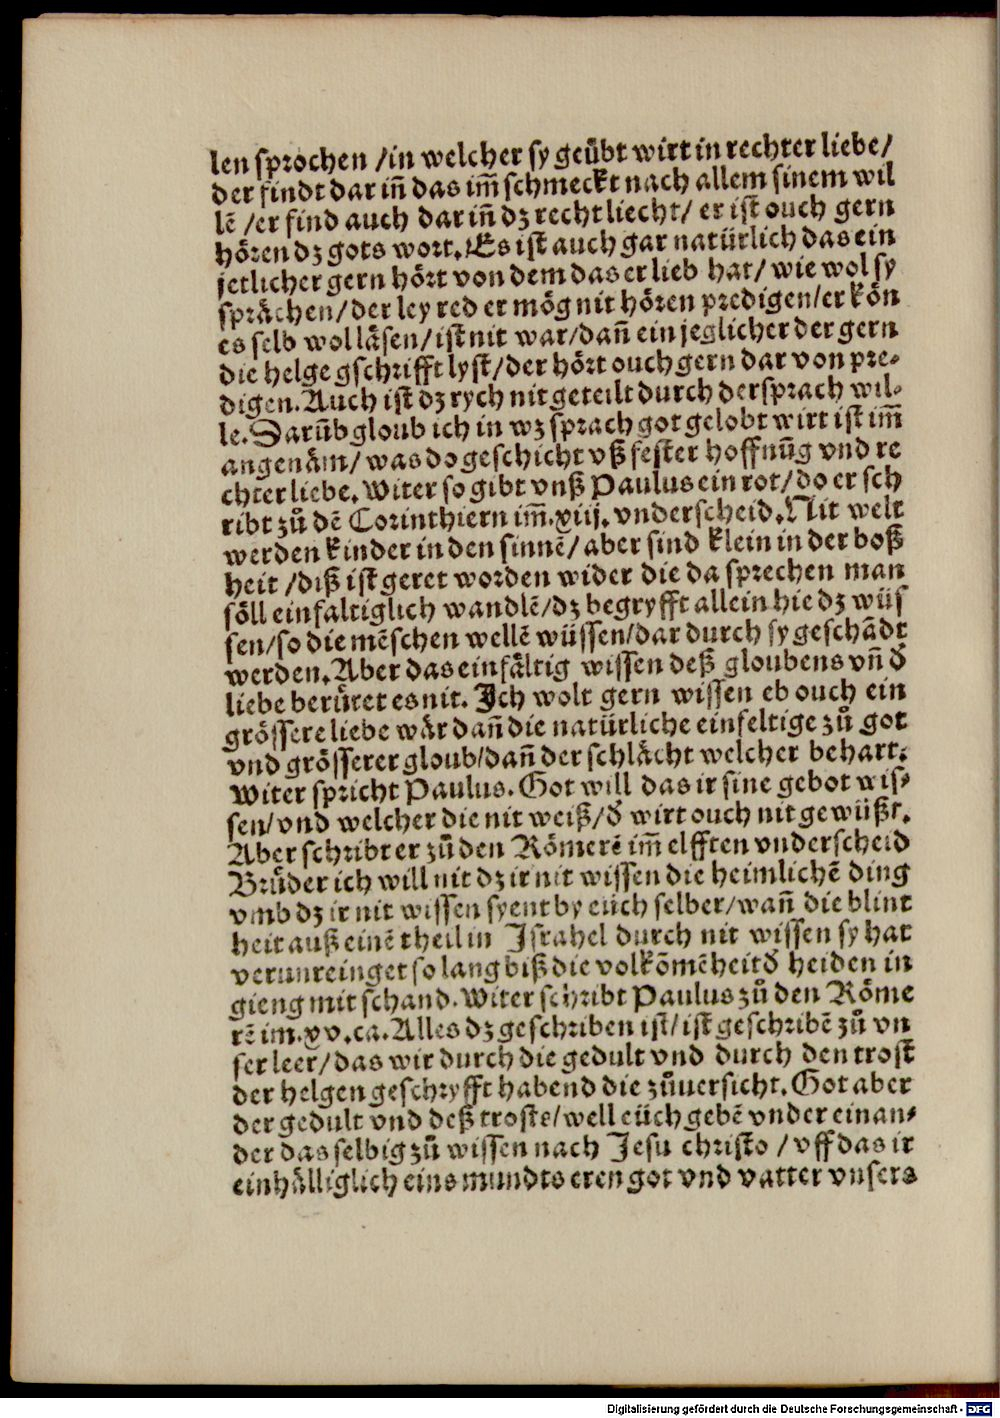 len sprochen /in welcher sy geübt wirt in rechter liebe/
der findt dar iñ das im̃ schmeckt nach allem sinem wil
lē /er find auch dar iñ dz recht liecht/ er ist ouch gern
hören dz gots wort. Es ist auch gar natürlich das ein
jetlicher gern hört von dem das er lieb hat/ wie wol sy
sprächen/ der ley red er mög nit hören predigen/er kön
es selb wol läsen/ ist nit war/dañ ein jeglicher der gern
die helge gschrifft lyst/der hört ouch gern dar von pre-
digen. Auch ist dz rych nit geteilt durch der sprach wil-
le. Darūb gloub ich in wz sprach got gelobt wirt ist im̃
angenäm/ was do geschicht vß fester hoffnūg vnd re
chter liebe. Witer so gibt vnß Paulus ein rot/ do er sch
ribt zů dē Corinthiern im̃.xiij. vnderscheid. Nit welt
werden kinder in den sinnē/ aber sind klein in der boß
heit /diß ist geret worden wider die da sprechen man
söll einfaltiglich wandlē/dz begryfft allein hie dz wüs
sen/so die mēschen wellē wüssen/dar durch sy geschādt
werden. Aber das einfältig wissen deß gloubens vñ d̄
liebe berüret es nit. Ich wolt gern wissen eb ouch ein
grössere liebe wär dañ die natürliche einfeltige zů got
vnd grösserer gloub/dañ der schlächt welcher behart.
Witer spricht Paulus. Got will das ir sine gebot wis-
sen/ vnd welcher die nit weiß/d̄ wirt ouch nit gewüßt.
Aber schribt er zů den Römerē im̃ elfften vnderscheid
Brüder ich will nit dz ir nit wissen die heimlichē ding
vmb dz ir nit wissen syent by eüch selber/wañ die blint
heit auß einē theil in Israhel durch nit wissen sy hat
verunreinget so lang biß die volkōmēheit d̄ heiden in
gieng mit schand. Witer schribt Paulus zů den Röme
rē im.xv.ca. Alles dz geschriben ist/ ist geschribē zů vn
ser leer/das wir durch die gedult vnd durch den trost
der helgen geschryfft habend die zůuersicht. Got aber
der gedult vnd deß trosts/well eüch gebē vnder einan-
der das selbig zů wissen nach Jesu christo / vff das ir
einhälliglich eins mundts eren got vnd vatter vnsers
Digitalisierung gefördert durch die Deutsche Forschungsgemeinschaft - DFG